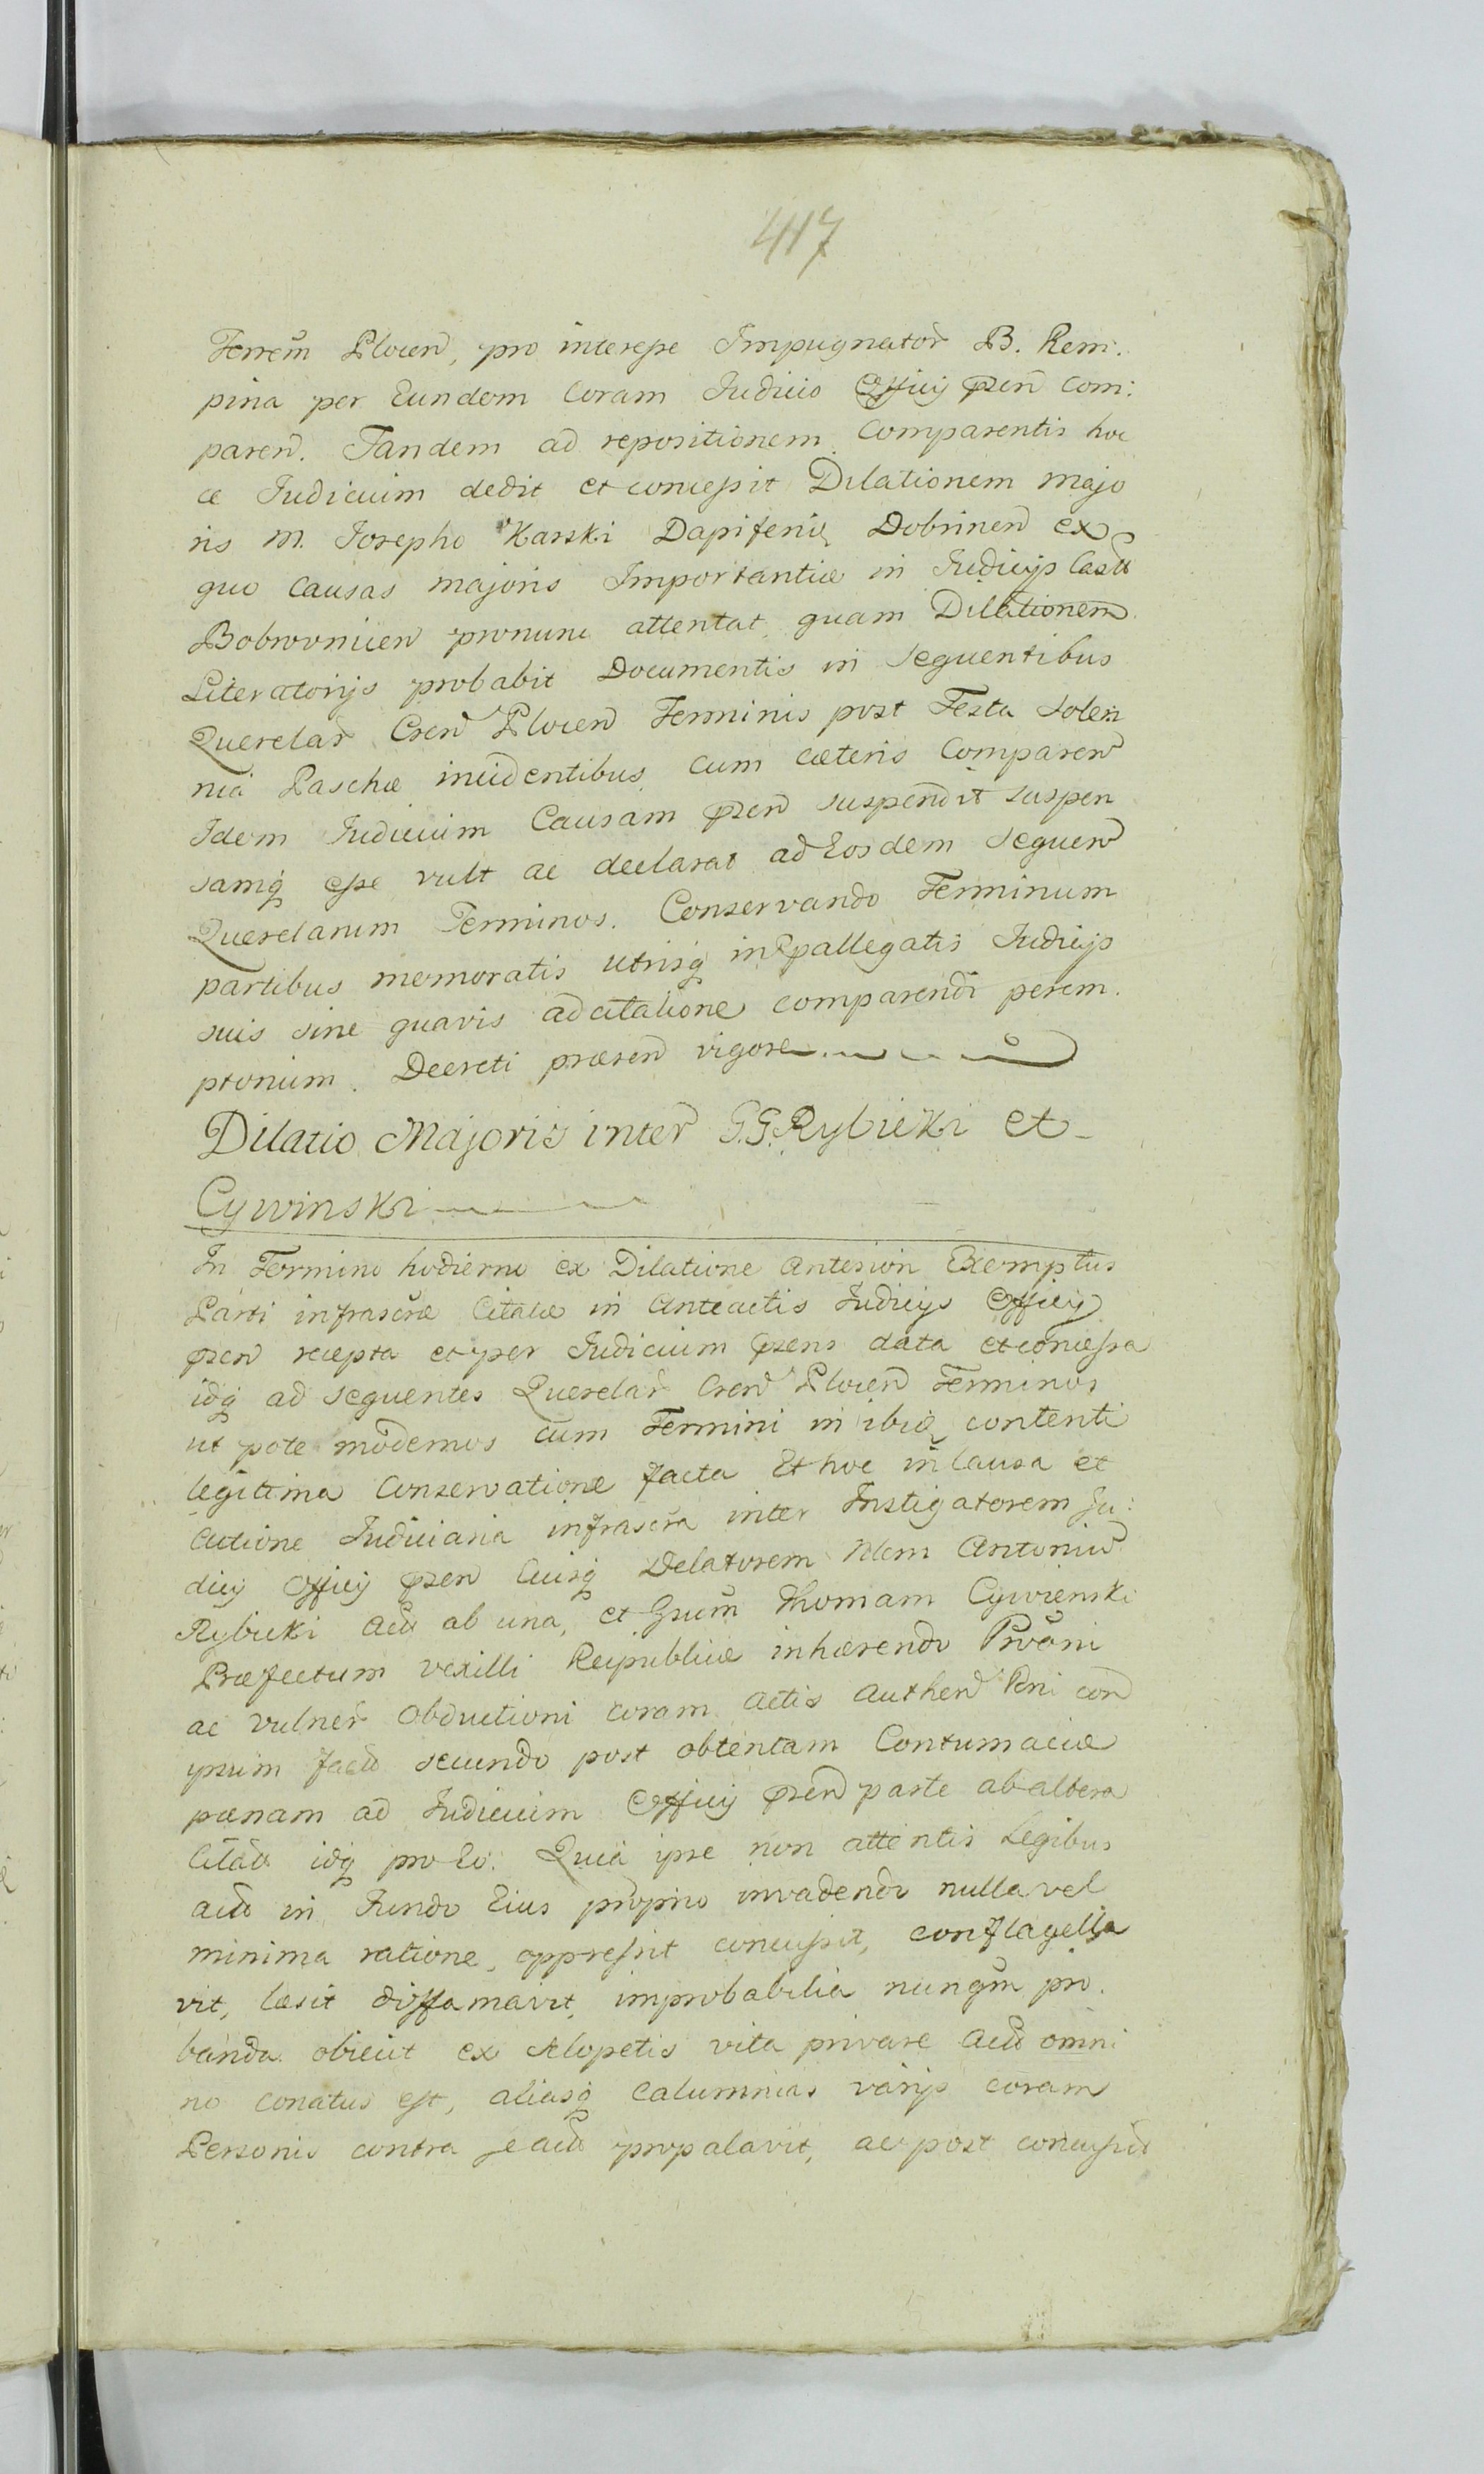 417
Terrem̃ Plocen̄, pro interesse Impugnator̄ B. Rem:
pina per Eundem Coram Judicio Officij p̄sen̄ com:
paren̄. Tandem ad repositionem Comparentis hoc
ce Judicium dedit et concessit Dilationem majo
ris M. Josepho Karski Dapifero Dobrinen̄ ex
quo Causas majoris Importantiæ in Judicijs Castr̄
Bobrovnicen̄ pronunc attentat, quam Dilationem
Literatorijs probabit Documentis in Sequentibus
Querelar̄ Cren̄ Plocen̄ Terminis post Festa Solen
nia Paschæ incidentibus, cum cæteris Comparen̄
Idem Judicium Causam p̄sen̄ suspendit suspen
samq̨ esse vult ac declarat ad Eosdem Sequen̄
Querelarum Terminos. Conservando Terminum
partibus memoratis utrisq̨ in p̄allegatis Judicijs
suis sine quavis adcitatione comparendi perem.
ptorium. Decreti præsen̄ vigore.
Dilatio Majoris inter G.G. Rybicki et
Cywinski
In Termino hodierno ex Dilatione Anteriori Exemptus
Parti infrascræ Citatæ in Anteactis Judicijs Officij
p̄sen̄ recepta et per Judicium p̄sens data et concessa
idq̨ ad sequentes Querelar̄ Cren̄ Plocen̄ Terminos
ut pote modernos cum Termini in ibiq̨ contenti
legitima Conservatione facta Et hoc in Causa et
Actione Judiciaria infrascra inter Instigatorem Ju:
dicij Officij p̄sen̄ Cuisq̨ Delatorem Nlem Antoniū
Rybicki Act̄ ab una, et Gsum̄ Thomam Cywienski
Præfectum vexilli Reipublicæ inhærendo Prv̄āni
ac vulner̄ Obductioni coram Actis Authen̄ Pcni con̄
ipsum fact̄ secundo post obtentam Contumaciæ
pœnam ad Judicium Officij p̄sen̄ parte ab altera
Citat̄ idq̨ pro Eo. Quia ipse non attentis Legibus
act̄ in Fundo Eius proprio invadendo nulla vel
minima ratione, oppressit concussit, conflagella
vit, læsit diffamavit, improbabilia nunq̄m pro.
banda obiecit ex Sclopetis vita privare Act̄ omni
no conatus est, aliasq̨ Calumnias varijs coram
Personis contra eact̄ propalavit, ac post concussit̄